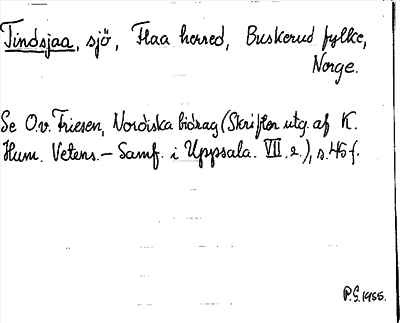 Tindsjaa, sjö, Flaa herred, Buskerud fylke,
Norge.
Se O.v. Friesen, Nordiska bidrag (Skrifter utg. af K.
Hum. Vetens.- Samf. i Uppsala. VII. 2.), s. 45 f.
P.G. 1955.